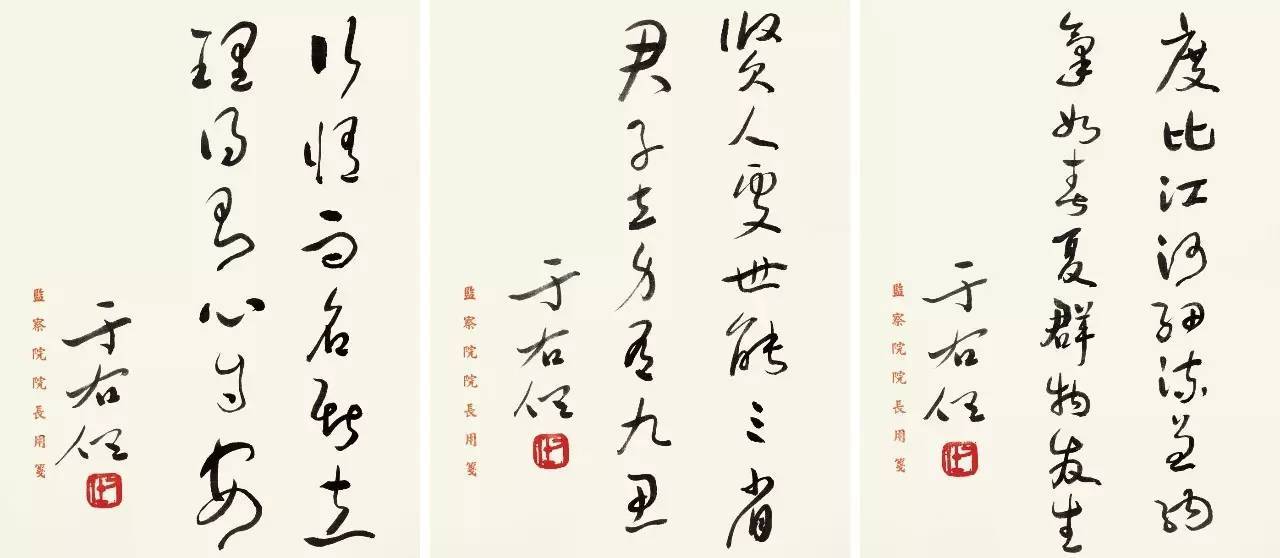 度比江河細流納
氣如春夏群物發生
于右任
監察院院長用箋
賢人處世能三省
君子立身有九思
于右任
監察院院長用箋
行脩而名斯立
理得則心自安
于右任
監察院院長用箋